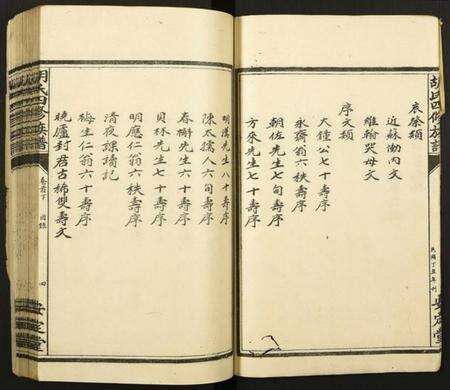 胡氏四修族譜
民國丁丑年刊
安定堂
哀祭類
近蘇泐內文
維翰哭母文
序文類
大鍾公七十壽序
永齋翁六秩壽序
朝佐先生七旬壽序
方來先生七十壽序
明漢先生八十壽序
陳太孺人六旬壽序
春榭先生六十壽序
貝林先生七十壽序
明應仁翁六秩壽序
清夜課讀記
梅生仁翁六十壽序
曉廬封君古稀雙壽文
胡氏四修族譜
卷首下 目錄
四
安定堂